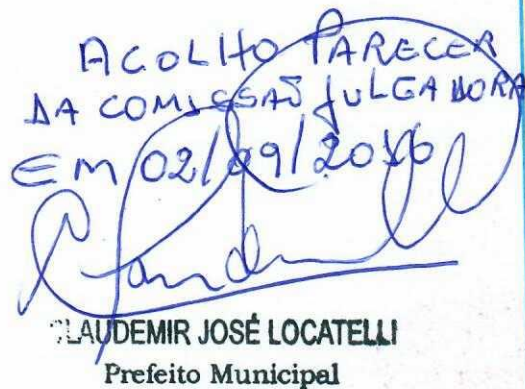 ACOLHO PARECER
DA COMISSAÕ JULGADORA
EM 02/09/2016
CLAUDEMIR JOSÉ LOCATELLI
Prefeito Municipal